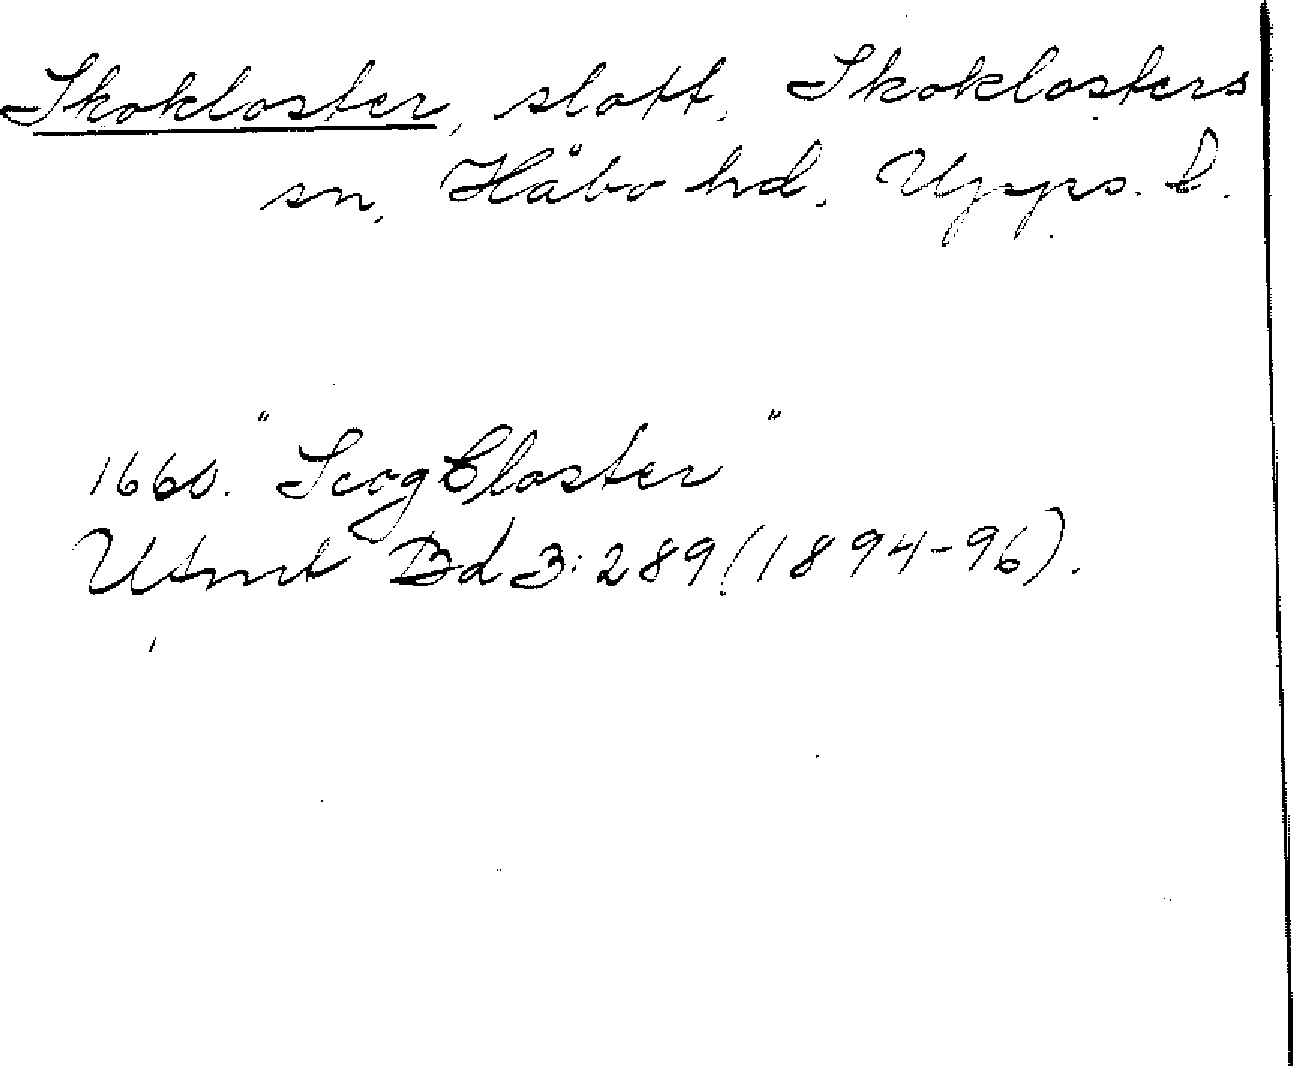 Skokloster, slott, Skoklosters
sn, Håbo hd, Upps. l.
1660. "Scog Closter"
Utmt Bd 3:289 (1894-96).